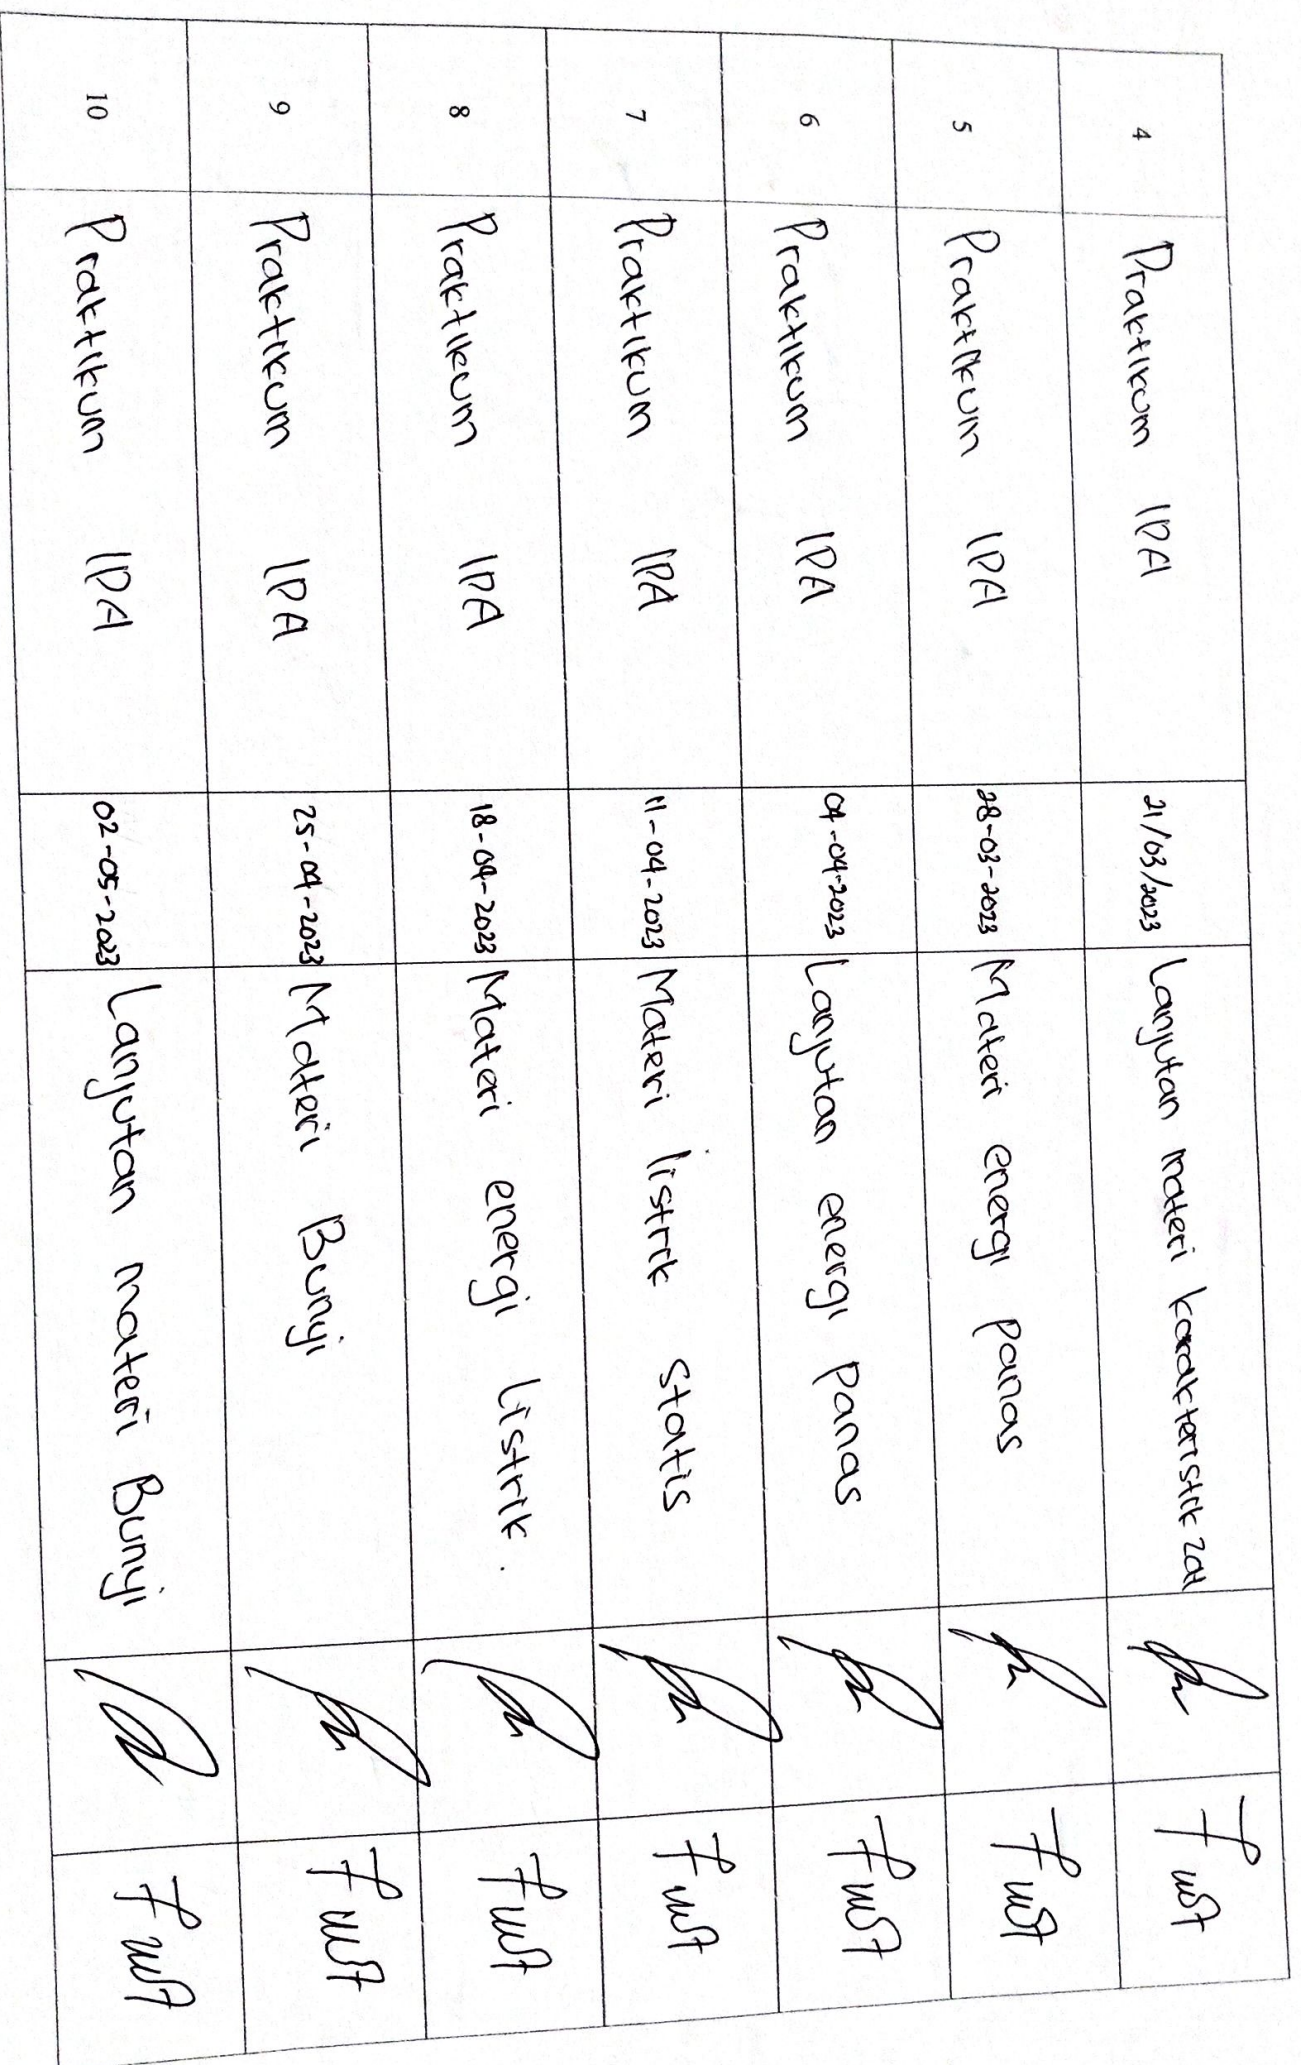 4 Praktikum IPA 21/03/2023 Lanjutan materi karakteristik zat
5 Praktikum IPA 28-03-2023 Materi energi panas
6 Praktikum IPA 04-04-2023 Lanjutan energi panas
7 Praktikum IPA 11-04-2023 Materi listrik statis
8 Praktikum IPA 18-04-2023 Materi energi listrik.
9 Praktikum IPA 25-04-2023 Materi Bunyi
10 Praktikum IPA 02-05-2023 Lanjutan materi Bunyi